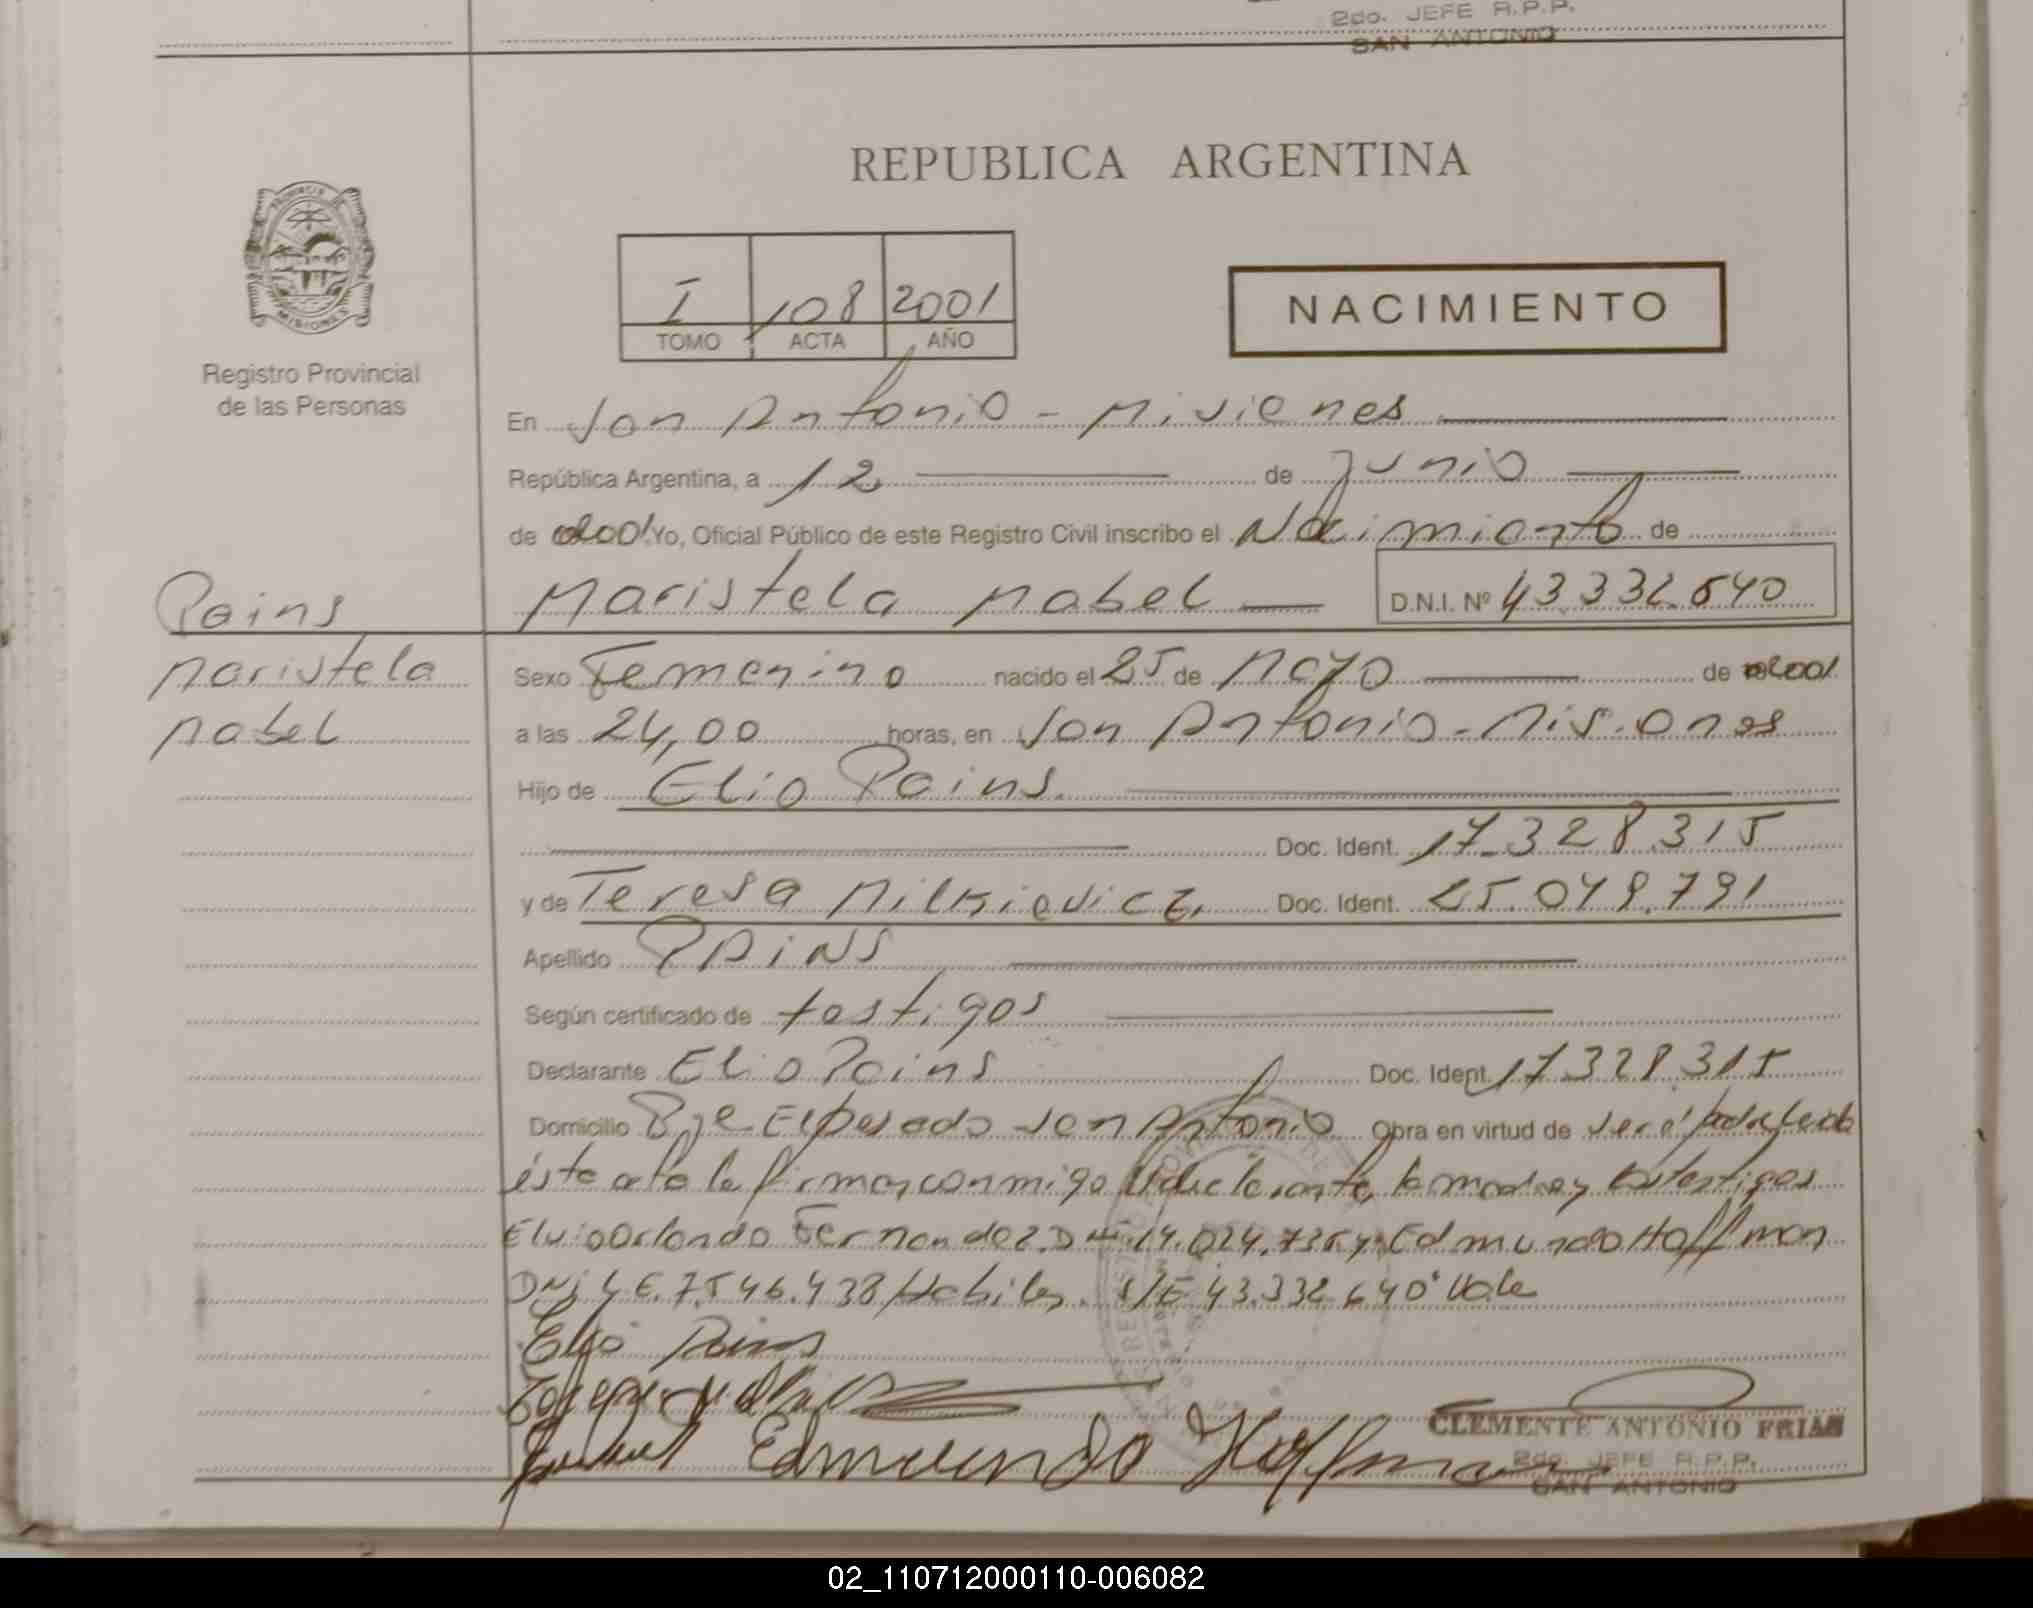 2do. JEFE R.P.P.
SAN ANTONIO
REPUBLICA ARGENTINA
PROVINCIA DE
MISIONES
Registro Provincial
de las Personas
I 108 2001
TOMO ACTA AÑO
NACIMIENTO
En San Antonio - Misiones
República Argentina, a 12 de Junio
de 2001 Yo, Oficial Público de este Registro Civil inscribo el Nacimiento de
Maristela Mabel D.N.I. Nº 43.332.640
Pains
Maristela
Mabel
Sexo Femenino nacido el 25 de Mayo de 2001
a las 24,00 horas, en San Antonio - Misiones
Hijo de Elio Pains.
Doc. Ident. 17.328.315
y de Teresa Milkievicz. Doc. Ident. 25.049.791
Apellido PAINS
Según certificado de testigos
Declarante Elio Pains Doc. Ident. 17.328.315
Domicilio Pje Elperado San Antonio Obra en virtud de ser el padre Leida
éste acta la firman conmigo el declarante, la madre y los testigos
Elvio Orlando Fernandez. DNI. 14.024.735 y Edmundo Hoffman
DNI LE. 7.546.438 Habiles. S/E 43.332.640 "Vale
Elio Pains
Edmundo Hoffman
CLEMENTE ANTONIO FRIAS
2do. JEFE R.P.P.
SAN ANTONIO
02_110712000110-006082